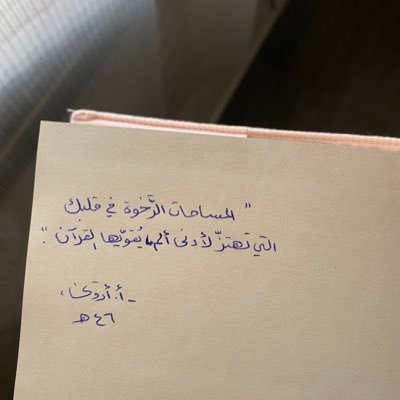 " المساحات الرَّخوة في قلبك
التي تهتزّ لأدنى ألم، يُقوّيها القرآن ".
- أ. أروى
٤٦ هـ